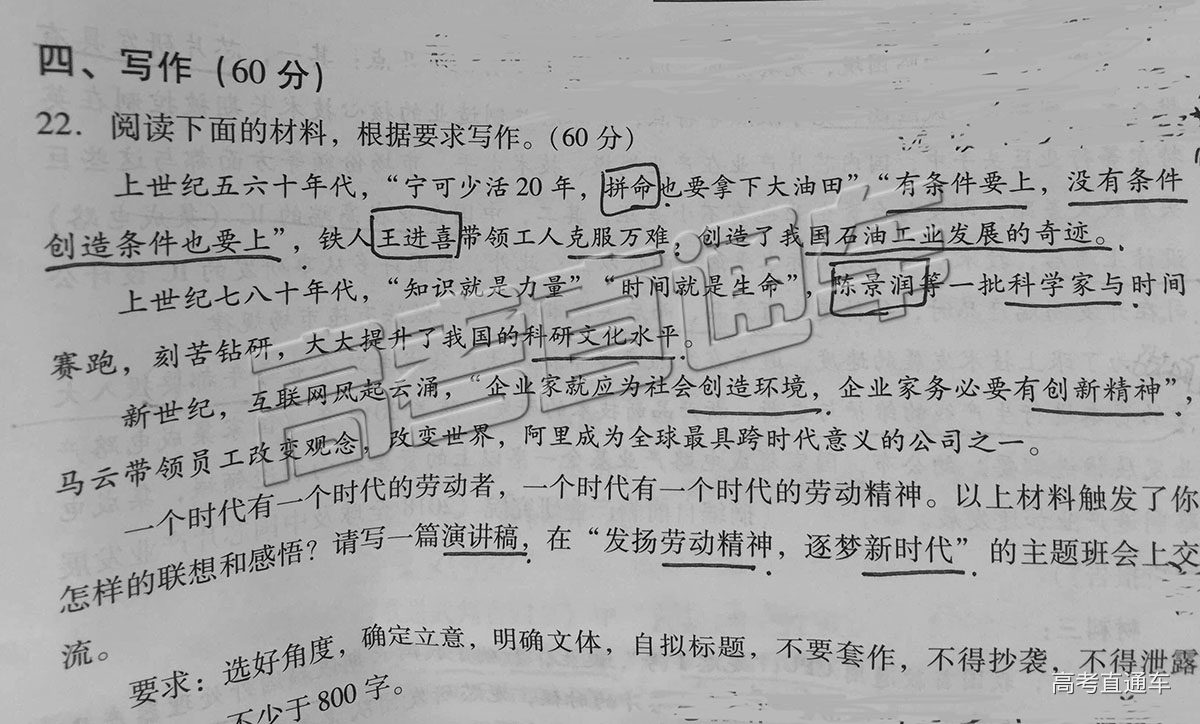 四、写作(60 分)
22. 阅读下面的材料，根据要求写作。(60 分)
上世纪五六十年代，“宁可少活 20 年，拼命也要拿下大油田”“有条件要上，没有条件
创造条件也要上”，铁人王进喜带领工人克服万难，创造了我国石油工业发展的奇迹。
上世纪七八十年代，“知识就是力量”“时间就是生命”，陈景润等一批科学家与时间
赛跑，刻苦钻研，大大提升了我国的科研文化水平。
新世纪，互联网风起云涌，“企业家就应为社会创造环境，企业家务必要有创新精神”，
马云带领员工改变观念，改变世界，阿里成为全球最具跨时代意义的公司之一。
一个时代有一个时代的劳动者，一个时代有一个时代的劳动精神。以上材料触发了你
怎样的联想和感悟？请写一篇演讲稿，在“发扬劳动精神，逐梦新时代”的主题班会上交
流。
要求：选好角度，确定立意，明确文体，自拟标题，不要套作，不得抄袭，不得泄露
不少于 800 字。
高考直通车
高考直通车